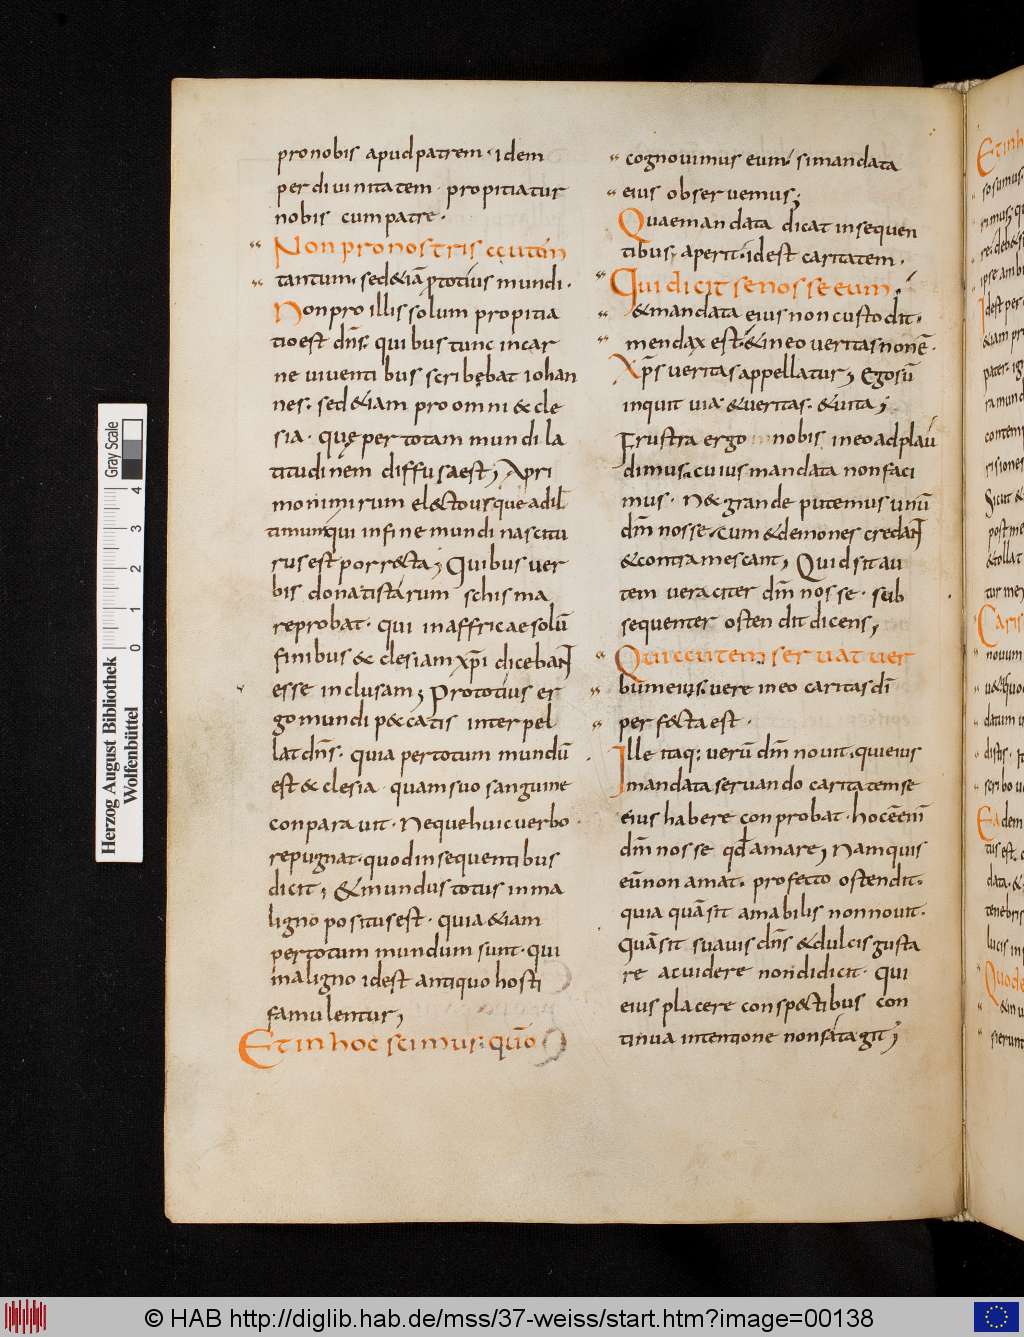 pronobis apud patrem · idem
per divinitatem · propitiatur
nobis cum patre ·
Non pro nostris autem
tantum · sed & iā ꝓ totius mundi ·
Non pro illis solum propitia
tio est dn̄s · quibus tunc in car
ne viventibus scribębat iohan
nes · sed & iam pro omni & cle
sia · quę per totam mundi la
titudinem diffusa est ; Apri
mo nimirum el&to usque ad il
timum qui in fine mundi nascitu
rus est porr&cta ; Quibus ver
bis donatistarum schisma
reprobat · qui in affricae solū
finibus & clesiam xp̄i diceban
esse inclusam ; Pro totius er
go mundi p&catis interpel
lat dn̄s · quia per totum mundū
est & clesia · quam suo sanguine
conparavit · Neque huic verbo ·
repugnat · quod in sequentibus
dicit ; & mundus totus in ma
ligno positus est · quia & iam
per totum mundum sunt · qui
maligno id est antiquo hosti
famulentur ;
Et in hoc scimus : quō
cognovimus eum · si mandata
eius observemus ;
Quae mandata dicat in sequen
tibus aperit · id est caritatem ·
Qui dicit se nosse eum ·
& mandata eius non custodit ·
mendax est · & in eo veritas non ē ·
Xp̄s veritas appellatur ; Ego sū
inquit via · & veritas · & vita ;
Frustra ergo nobis in eo adplau
dimus · cuius mandata non faci
mus · N& grande putemus unū
dm̄ nosse · cum & demones credan
& contramescant ; Quid sit au
tem veraciter dm̄ nosse · sub
sequenter ostendit dicens ;
Qui autem servat ver
bum eius · vere in eo caritas dī
perf&cta est ·
Ille itaq; verū dm̄ novit · qui eius
mandata servando caritatem se
eius habere conprobat · hoc ē enī
dm̄ nosse qđ amare ; Nam quis
eū non amat · profecto ostendit ·
quia quā sit amabilis non novit ·
Quā sit suavis dn̄s & dulcis gusta
re ac videre non didicit · qui
eius placere consp&ctibus con
tinua intentione non satagit ;
Herzog August Bibliothek
Wolfenbüttel
Gray Scale
0 1 2 3 4
© HAB http://diglib.hab.de/mss/37-weiss/start.htm?image=00138